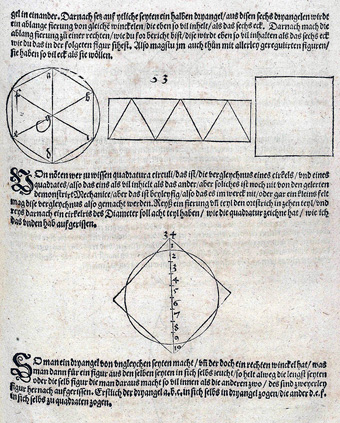 gel in einander. Darnach setz auf yetliche seyten ein halben dryangel/ aus disen sechs dryangelen wirdt
ein ablang fierung von gleiche winckelen/ die eben so vil inhelt/ als das sechs eck. Darnach mach die
ablang fierung zů einer rechten/ wie du for bericht bist/ dise wirdet eben so vil inhalten als das sechs eck
wie du das in der folgeten figur sihest. Also magstu jm auch thůn mit allerley geregulirten figuren/
sie haben so vil eck als sie wöllen.
53
a
f b
g
e c
d
Von nöten wer zu wissen quadratura circuli/ das ist/ die vergleychnus eines cirkels/ vnd eines
quadrates/ also das eins als vil inhielt als das ander/ aber solches ist noch nit von den gelerten
demonstrirt/ Mechanice/ aber das ist beyleyfig/ also das es im werck nit/ oder gar ein kleins felt
mag dise vergleychnus also gemacht werden. Reyß ein fierung vnd teyl den ortstrich in zehen teyl/ vnd
reys darnach ein cirkelris des Diameter soll acht teyl haben/ wie die quadratur zeichne hat/ wie ich
das vnden hab aufgerissen.
34
1
2
3
4
5
6
7
8
9
10
So man ein dryangel von vngleychen seyten macht/ vnd der doch ein rechten winckel hat/ was
man dann für ein figur aus den selben seyten in sich selbs zeucht/ so helt alweg die lengst seyten
oder die selb figur die man daraus macht so vil innen als die anderen zwo/ des sind zweyerley
figur hernach aufgerissen. Erstlich der dryangel a.b.c. in sich selbs in dryangel zogen/ die ander d.e.f.
in sich selbs zu quadraten zogen.